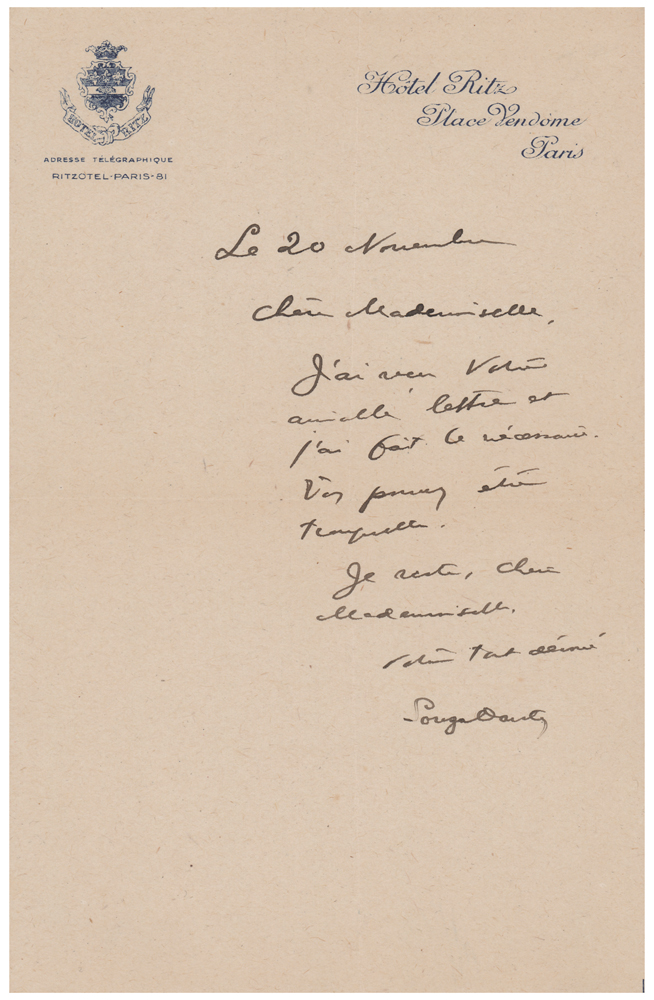 HOTEL RITZ
ADRESSE TÉLÉGRAPHIQUE
RITZOTEL-PARIS-81
Hôtel Ritz
Place Vendôme
Paris
Le 20 Novembre
Chère Mademoiselle,
J'ai reçu Votre
aimable lettre et
j'ai fait le nécessaire.
Vos pouvez être
tranquille.
Je reste, chère
Mademoiselle,
Votre tout dévoué
Souza Dantas